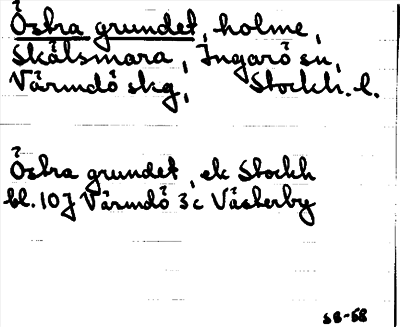 Östra grundet, holme,
Skälsmara, Ingarö sn,
Värmdö skg, Stockh. l.
Östra grundet, ek Stockh
bl. 10J Värmdö 3c Västerby
SB-68